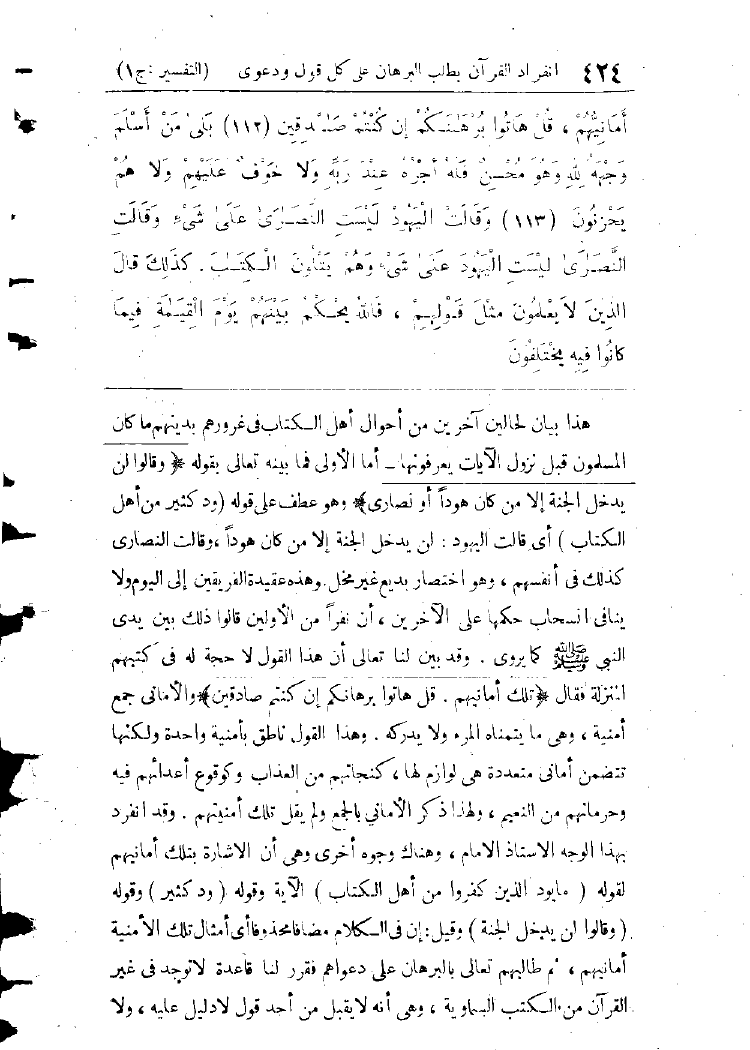 ٤٢٤ انفراد القرآن بطلب البرهان على كل قول ودعوى (التفسير : ج ١)
أَمَانِيُّهُمْ ، قُلْ هَاتُوا بُرْهَٰنَكُمْ إِن كُنْتُمْ صَٰدِقِين (١١٢) بَلَىٰ مَنْ أَسْلَمَ
وَجْهَهُ لِلهِ وَهُوَ مُحْسِنٌ فَلَهُ أَجْرُهُ عِنْدَ رَبِّهِ وَلَا خَوْفٌ عَلَيْهِمْ وَلَا هُمْ
يَحْزَنُونَ (١١٣) وَقَالَتِ الْيَهُودُ لَيْسَتِ النَّصَارَىٰ عَلَىٰ شَيْءٍ وَقَالَتِ
النَّصَارَىٰ لَيْسَتِ الْيَهُودُ عَلَىٰ شَيْءٍ وَهُمْ يَتْلُونَ الْكِتَٰبَ . كَذَٰلِكَ قَالَ
الَّذِينَ لَا يَعْلَمُونَ مِثْلَ قَوْلِهِمْ ، فَاللهُ يَحْكُمُ بَيْنَهُمْ يَوْمَ الْقِيَٰمَةِ فِيمَا
كَانُوا فِيهِ يَخْتَلِفُونَ
هذا بيان لحالين آخرين من أحوال أهل الكتاب فى غرورهم بدينهم ما كان
المسلمون قبل نزول الآيات يعرفونها ــ أما الأولى فما بينه تعالى بقوله ﴿ وقالوا لن
يدخل الجنة إلا من كان هوداً أو نصارى﴾ وهو عطف على قوله (ود كثير من أهل
الكتاب ) أى قالت اليهود : لن يدخل الجنة إلا من كان هوداً ، وقالت النصارى
كذلك فى أنفسهم ، وهو اختصار بديع غير مخل. وهذه عقيدة الفريقين إلى اليوم ولا
ينافى انسحاب حكمها على الآخرين ، أن نفراً من الأولين قالوا ذلك بين يدى
النبي ﷺ كما يروى . وقد بين لنا تعالى أن هذا القول لا حجة له فى كتبهم
المنزلة فقال ﴿تلك أمانيهم . قل هاتوا برهانكم إن كنتم صادقين﴾ والأمانى جمع
أمنية ، وهى ما يتمناه المرء ولا يدركه . وهذا القول ناطق بأمنية واحدة ولكنها
تتضمن أمانى متعددة هى لوازم لها ، كنجاتهم من العذاب وكوقوع أعدائهم فيه
وحرمانهم من النعيم ، ولهذا ذكر الأماني بالجمع ولم يقل تلك أمنيتهم . وقد انفرد
بهذا الوجه الاستاذ الامام ، وهناك وجوه أخرى وهى أن الاشارة بتلك أمانيهم
لقوله ( مايود الذين كفروا من أهل الكتاب ) الآية وقوله ( ود كثير ) وقوله
( وقالوا لن يدخل الجنة ) وقيل : إن فى الكلام مضافا محذوفا أى أمثال تلك الأمنية
أمانيهم ، ثم طالبهم تعالى بالبرهان على دعواهم فقرر لنا قاعدة لا توجد فى غير
القرآن من الكتب السماوية ، وهى أنه لا يقبل من أحد قول لا دليل عليه ، ولا